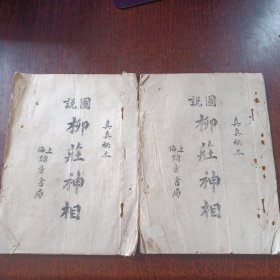 真真秘本
圖說
柳莊神相
上海
章書局
真真秘本
圖說
柳莊神相
上海
章書局